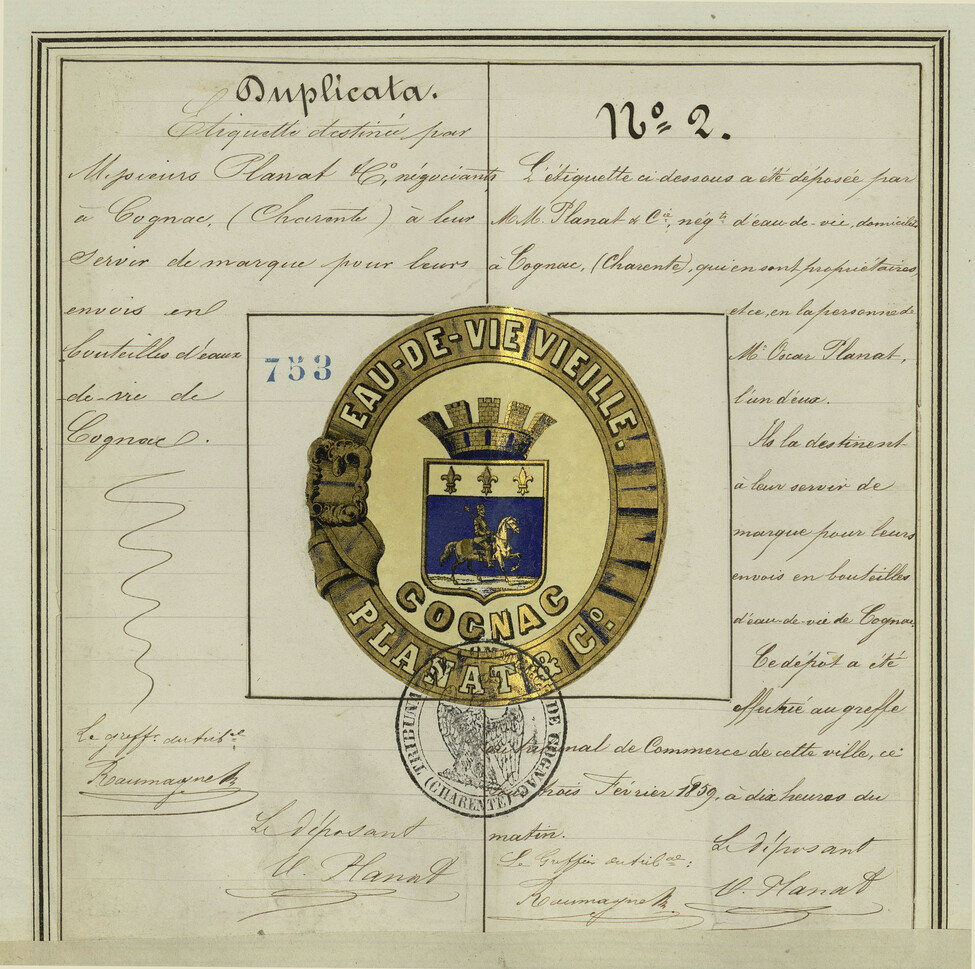 Duplicata.
Etiquette destinée par
Messieurs Planat & Co, négociants
à Cognac, (Charente) à leur
servir de marque pour leurs
envois en
bouteilles d'eaux
de-vie de
Cognac.
Le greff. du trib.al
Roumagne
Le déposant
O. Planat
No 2.
L'étiquette ci dessous a été déposée par
M.M. Planat & Cie, négts d'eau-de-vie, domiciliés
à Cognac, (Charente), qui en sont propriétaires,
et ce, en la personne de
Mr Oscar Planat,
l'un d'eux.
Ils la destinent
à leur servir de
marque pour leurs
envois en bouteilles
d'eau-de-vie de Cognac.
Ce dépôt a été
effectué au greffe
du tribunal de Commerce de cette ville, ce
trois Février 1859, à dix heures du
matin.
Le Greffier du trib.al:
Roumagne
Le déposant
O. Planat
753
EAU-DE-VIE VIEILLE.
COGNAC
PLANAT & Co.
TRIBUNAL DE COGNAC
(CHARENTE)